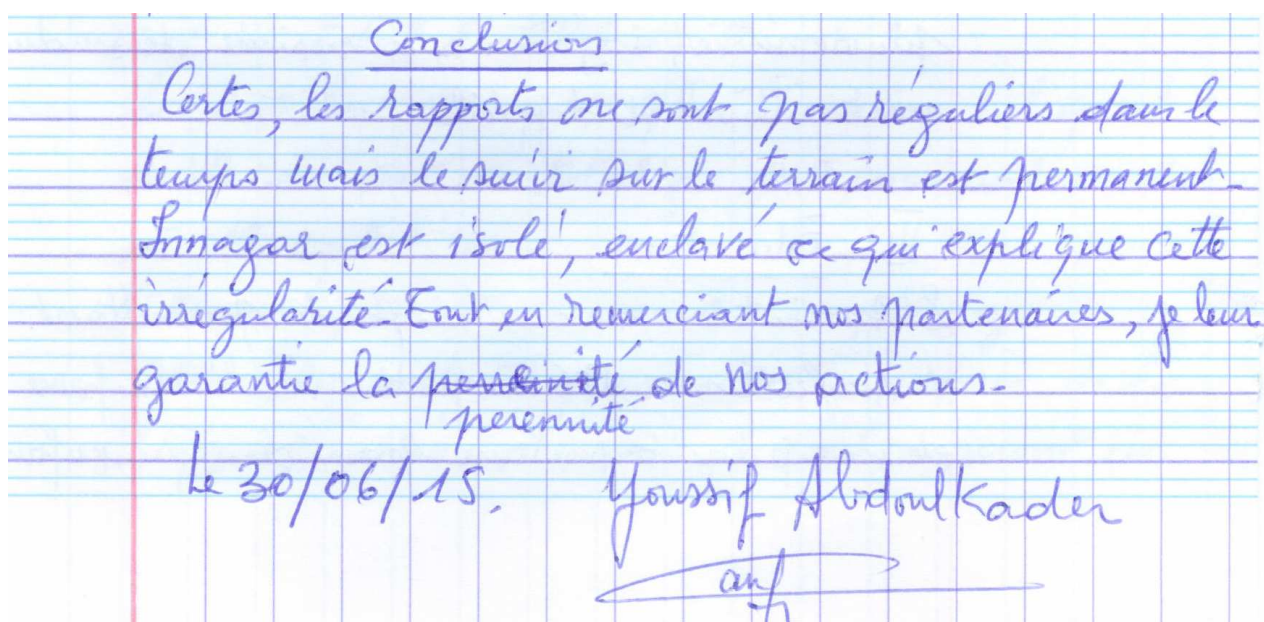 Conclusion
Certes, les rapports ne sont pas réguliers dans le
temps mais le suivi sur le terrain est permanent.
Innagar est isolé, enclavé ce qui explique cette
irrégularité. Tout en remerciant nos partenaires, je leur
garantie la de nos actions.
perennité
Le 30/06/15. Youssif Abdoulkader